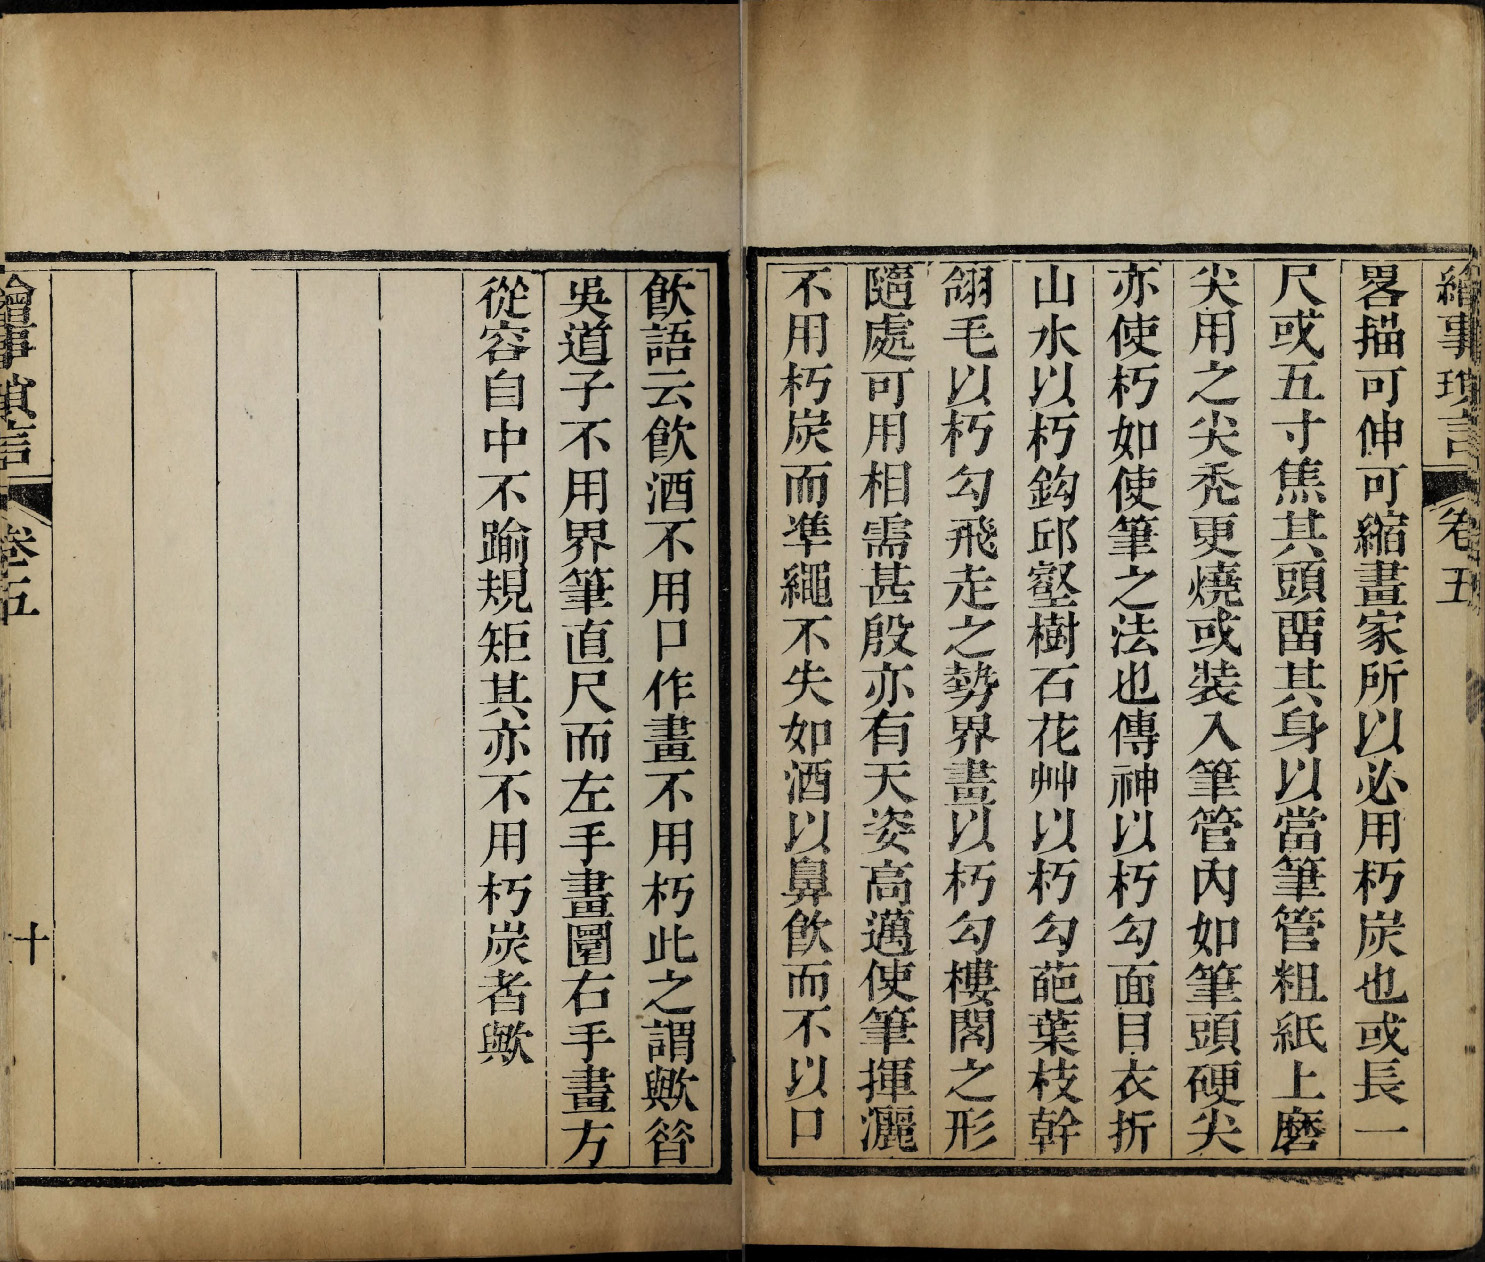 繪事瑣言 卷五
畧描可伸可縮畫家所以必用朽炭也或長一
尺或五寸焦其頭畱其身以當筆管粗紙上磨
尖用之尖禿更燒或裝入筆管內如筆頭硬尖
亦使朽如使筆之法也傳神以朽勾面目衣折
山水以朽鈎邱壑樹石花艸以朽勾葩葉枝幹
翎毛以朽勾飛走之勢界畫以朽勾樓閣之形
隨處可用相需甚殷亦有天姿高邁使筆揮灑
不用朽炭而準繩不失如酒以鼻飲而不以口
飲語云飲酒不用口作畫不用朽此之謂歟昝
吳道子不用界筆直尺而左手畫圓右手畫方
從容自中不踰規矩其亦不用朽炭者歟
繪事瑣言 卷五 十